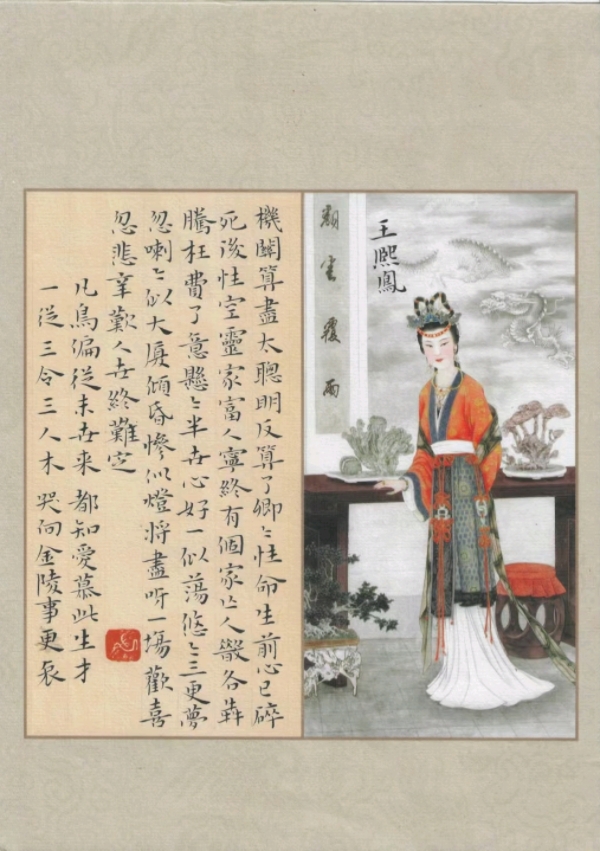 王熙鳳
翻雲覆雨
機關算盡太聰明反算了卿〻性命生前心已碎
死後性空靈家富人寧終有個家亡人散各奔
騰枉費了意懸〻半世心好一似蕩悠〻三更夢
忽喇〻似大廈傾昏慘似燈將盡呀一場歡喜
忽悲辛歎人世終難定
凡鳥偏從末世來 都知愛慕此生才
一從三令三人木 哭向金陵事更哀